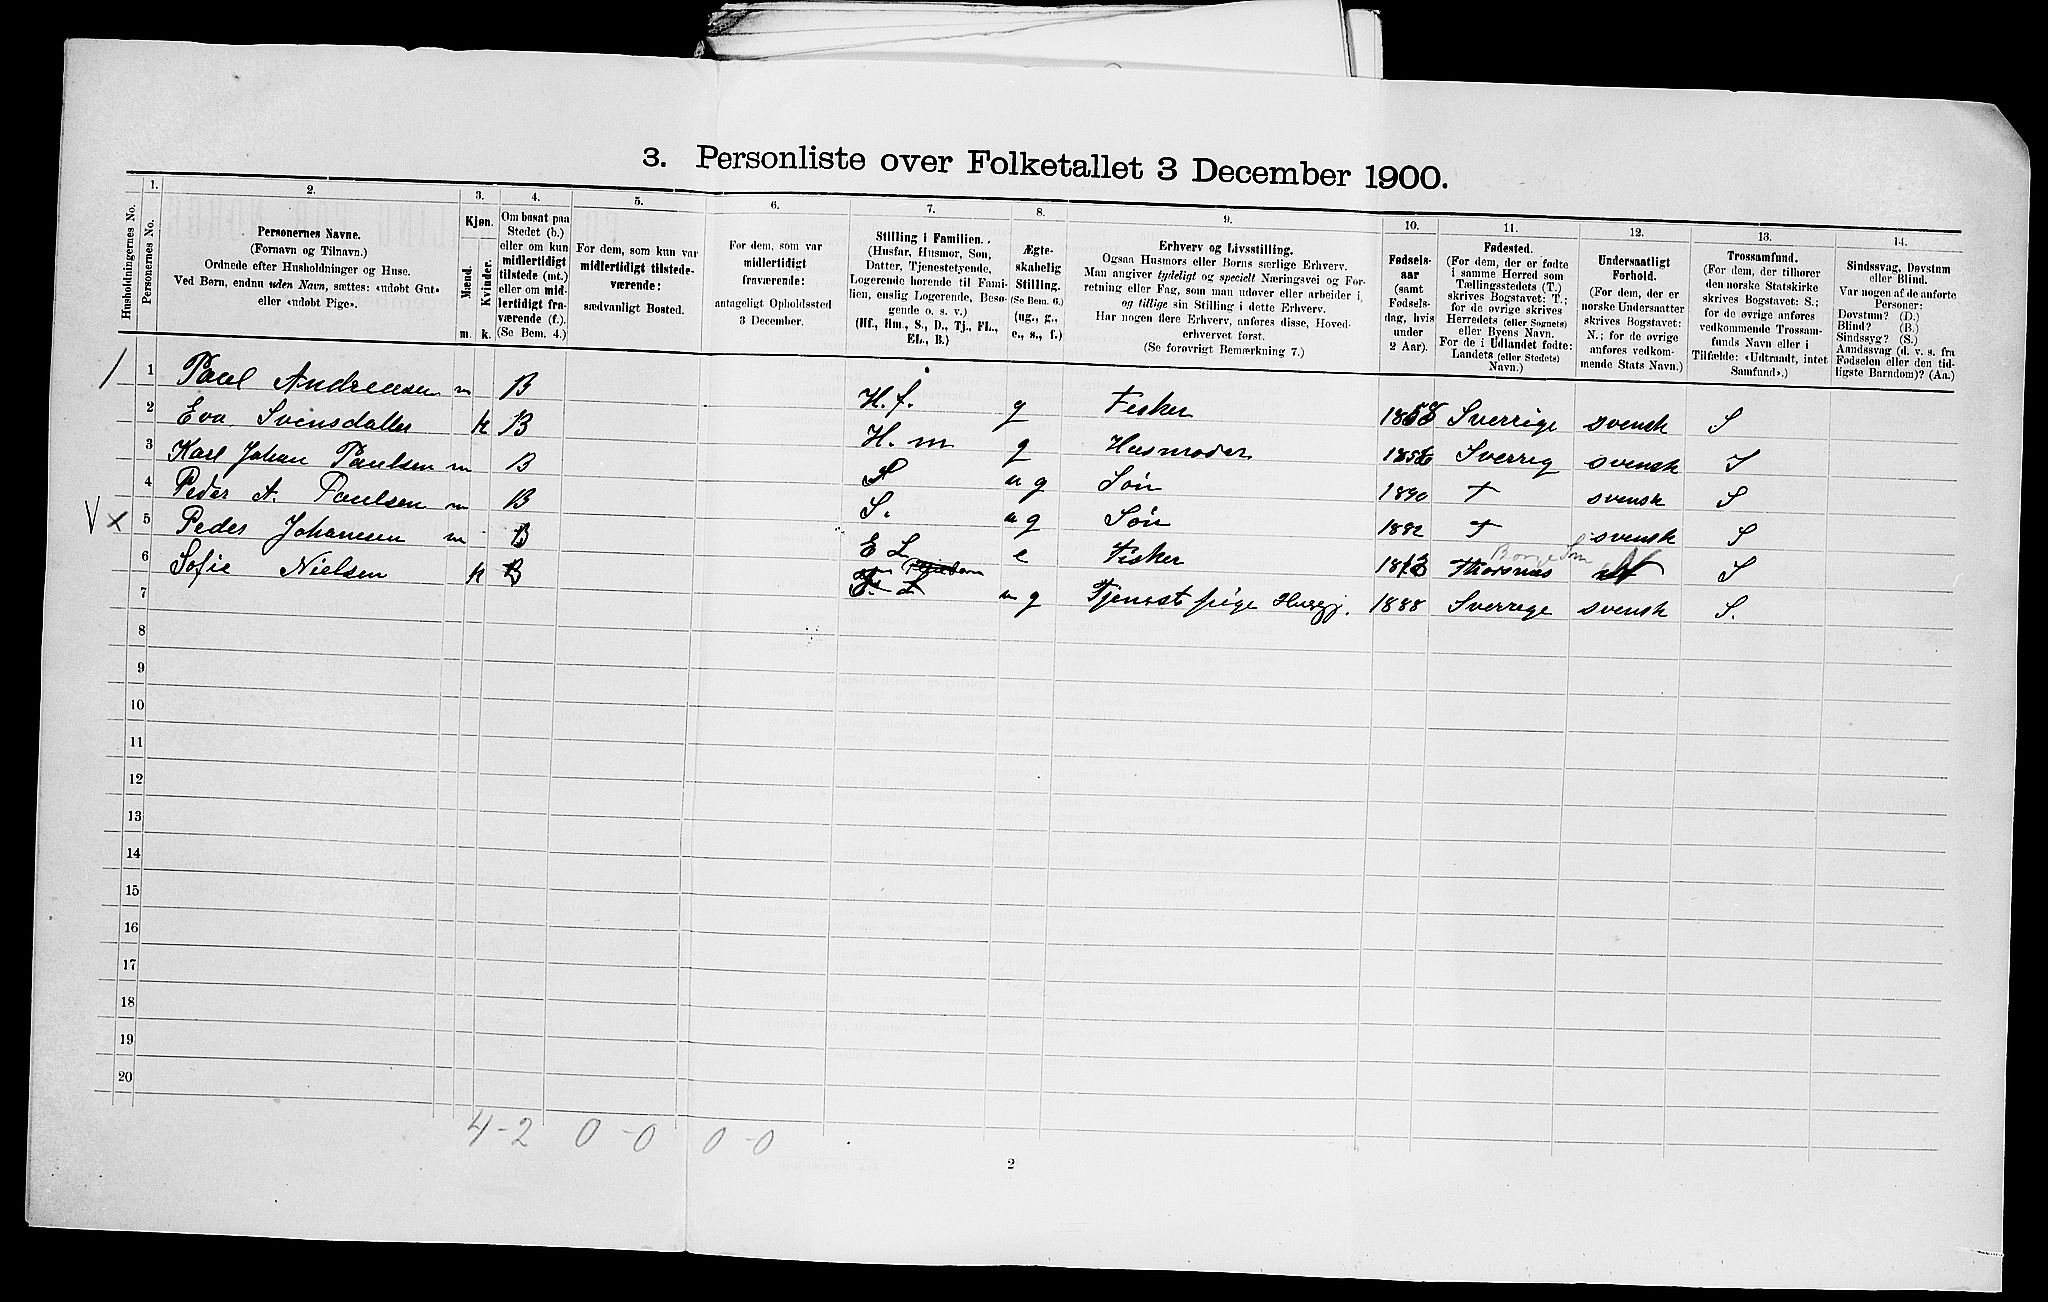 3. Personliste over Folketallet 3 December 1900.
1. 2. 3. 4. 5. 6. 7. 8. 9. 10. 11. 12. 13. 14.
Husholdningernes No.
Personernes No.
Personernes Navne.
(Fornavn og Tilnavn.)
Ordnede efter Husholdninger og Huse.
Ved Børn, endnu uden Navn, sættes: «udøbt Gut»
eller «udøbt Pige».
Kjøn.
Mænd.
Kvinder.
m. k.
Om bosat paa
Stedet (b.)
eller om kun
midlertidigt
tilstede (mt.)
eller om mid-
lertidigt fra-
værende (f.).
(Se Bem. 4.)
For dem, som kun var
midlertidigt tilstede-
værende:
sædvanligt Bosted.
For dem, som var
midlertidigt
fraværende:
antageligt Opholdssted
3 December.
Stilling i Familien.
(Husfar, Husmor, Søn,
Datter, Tjenestetyende,
Logerende hørende til Fami-
lien, enslig Logerende, Besø-
gende o. s. v.)
(Hf., Hm., S., D., Tj., FL.,
EL., B.)
Ægte-
skabelig
Stilling.
(Se Bem. 6.)
(ug., g.,
e., s., f.)
Erhverv og Livsstilling.
Ogsaa Husmors eller Børns særlige Erhverv.
Man angiver tydeligt og specielt Næringsvei og For-
retning eller Fag, som man udøver eller arbeider i,
og tillige sin Stilling i dette Erhverv.
Har nogen flere Erhverv, anføres disse, Hoved-
erhvervet først.
(Se forøvrigt Bemærkning 7.)
Fødsels-
aar
(samt
Fødsels-
dag, hvis
under
2 Aar).
Fødested.
(For dem, der er fødte
i samme Herred som
Tællingsstedets (T.)
skrives Bogstavet: T.;
for de øvrige skrives
Herredets (eller Sognets)
eller Byens Navn.
For de i Udlandet fødte:
Landets (eller Stedets)
Navn.)
Undersaatligt
Forhold.
(For dem, der er
norske Undersaatter
skrives Bogstavet:
N.; for de øvrige
anføres vedkom-
mende Stats Navn.)
Trossamfund.
(For dem, der tilhører
den norske Statskirke
skrives Bogstavet: S.;
for de øvrige anføres
vedkommende Trossam-
funds Navn eller i
Tilfælde: «Udtraadt, intet
Samfund».)
Sindssvag, Døvstum
eller Blind.
Var nogen af de anførte
Personer:
Døvstum? (D.)
Blind? (B.)
Sindssyg? (S.)
Aandssvag (d. v. s. fra
Fødselen eller den tid-
ligste Barndom)? (Aa.)
1 Paul Andreasen m B H. f. g Fisker 1858 Sverrige svensk S
2 Eva Svensdatter k B H. m g Husmoder 1856 Sverrig svensk S
3 Karl Johan Paulsen m B S ug Søn 1890 T svensk S
4 Peder A. Paulsen m B S. ug Søn 1892 T svensk S
V x 5 Peder Johansen m B E L e Fisker Borge Sm Thorsnæs N S
6 Sofie Nielsen k B E. L ug Tjenest pige Husgj. 1888 Sverrige svensk S.
7
8
9
10
11
12
13
14
15
16
17
18
19
20
4-2 0-0 0-0
2